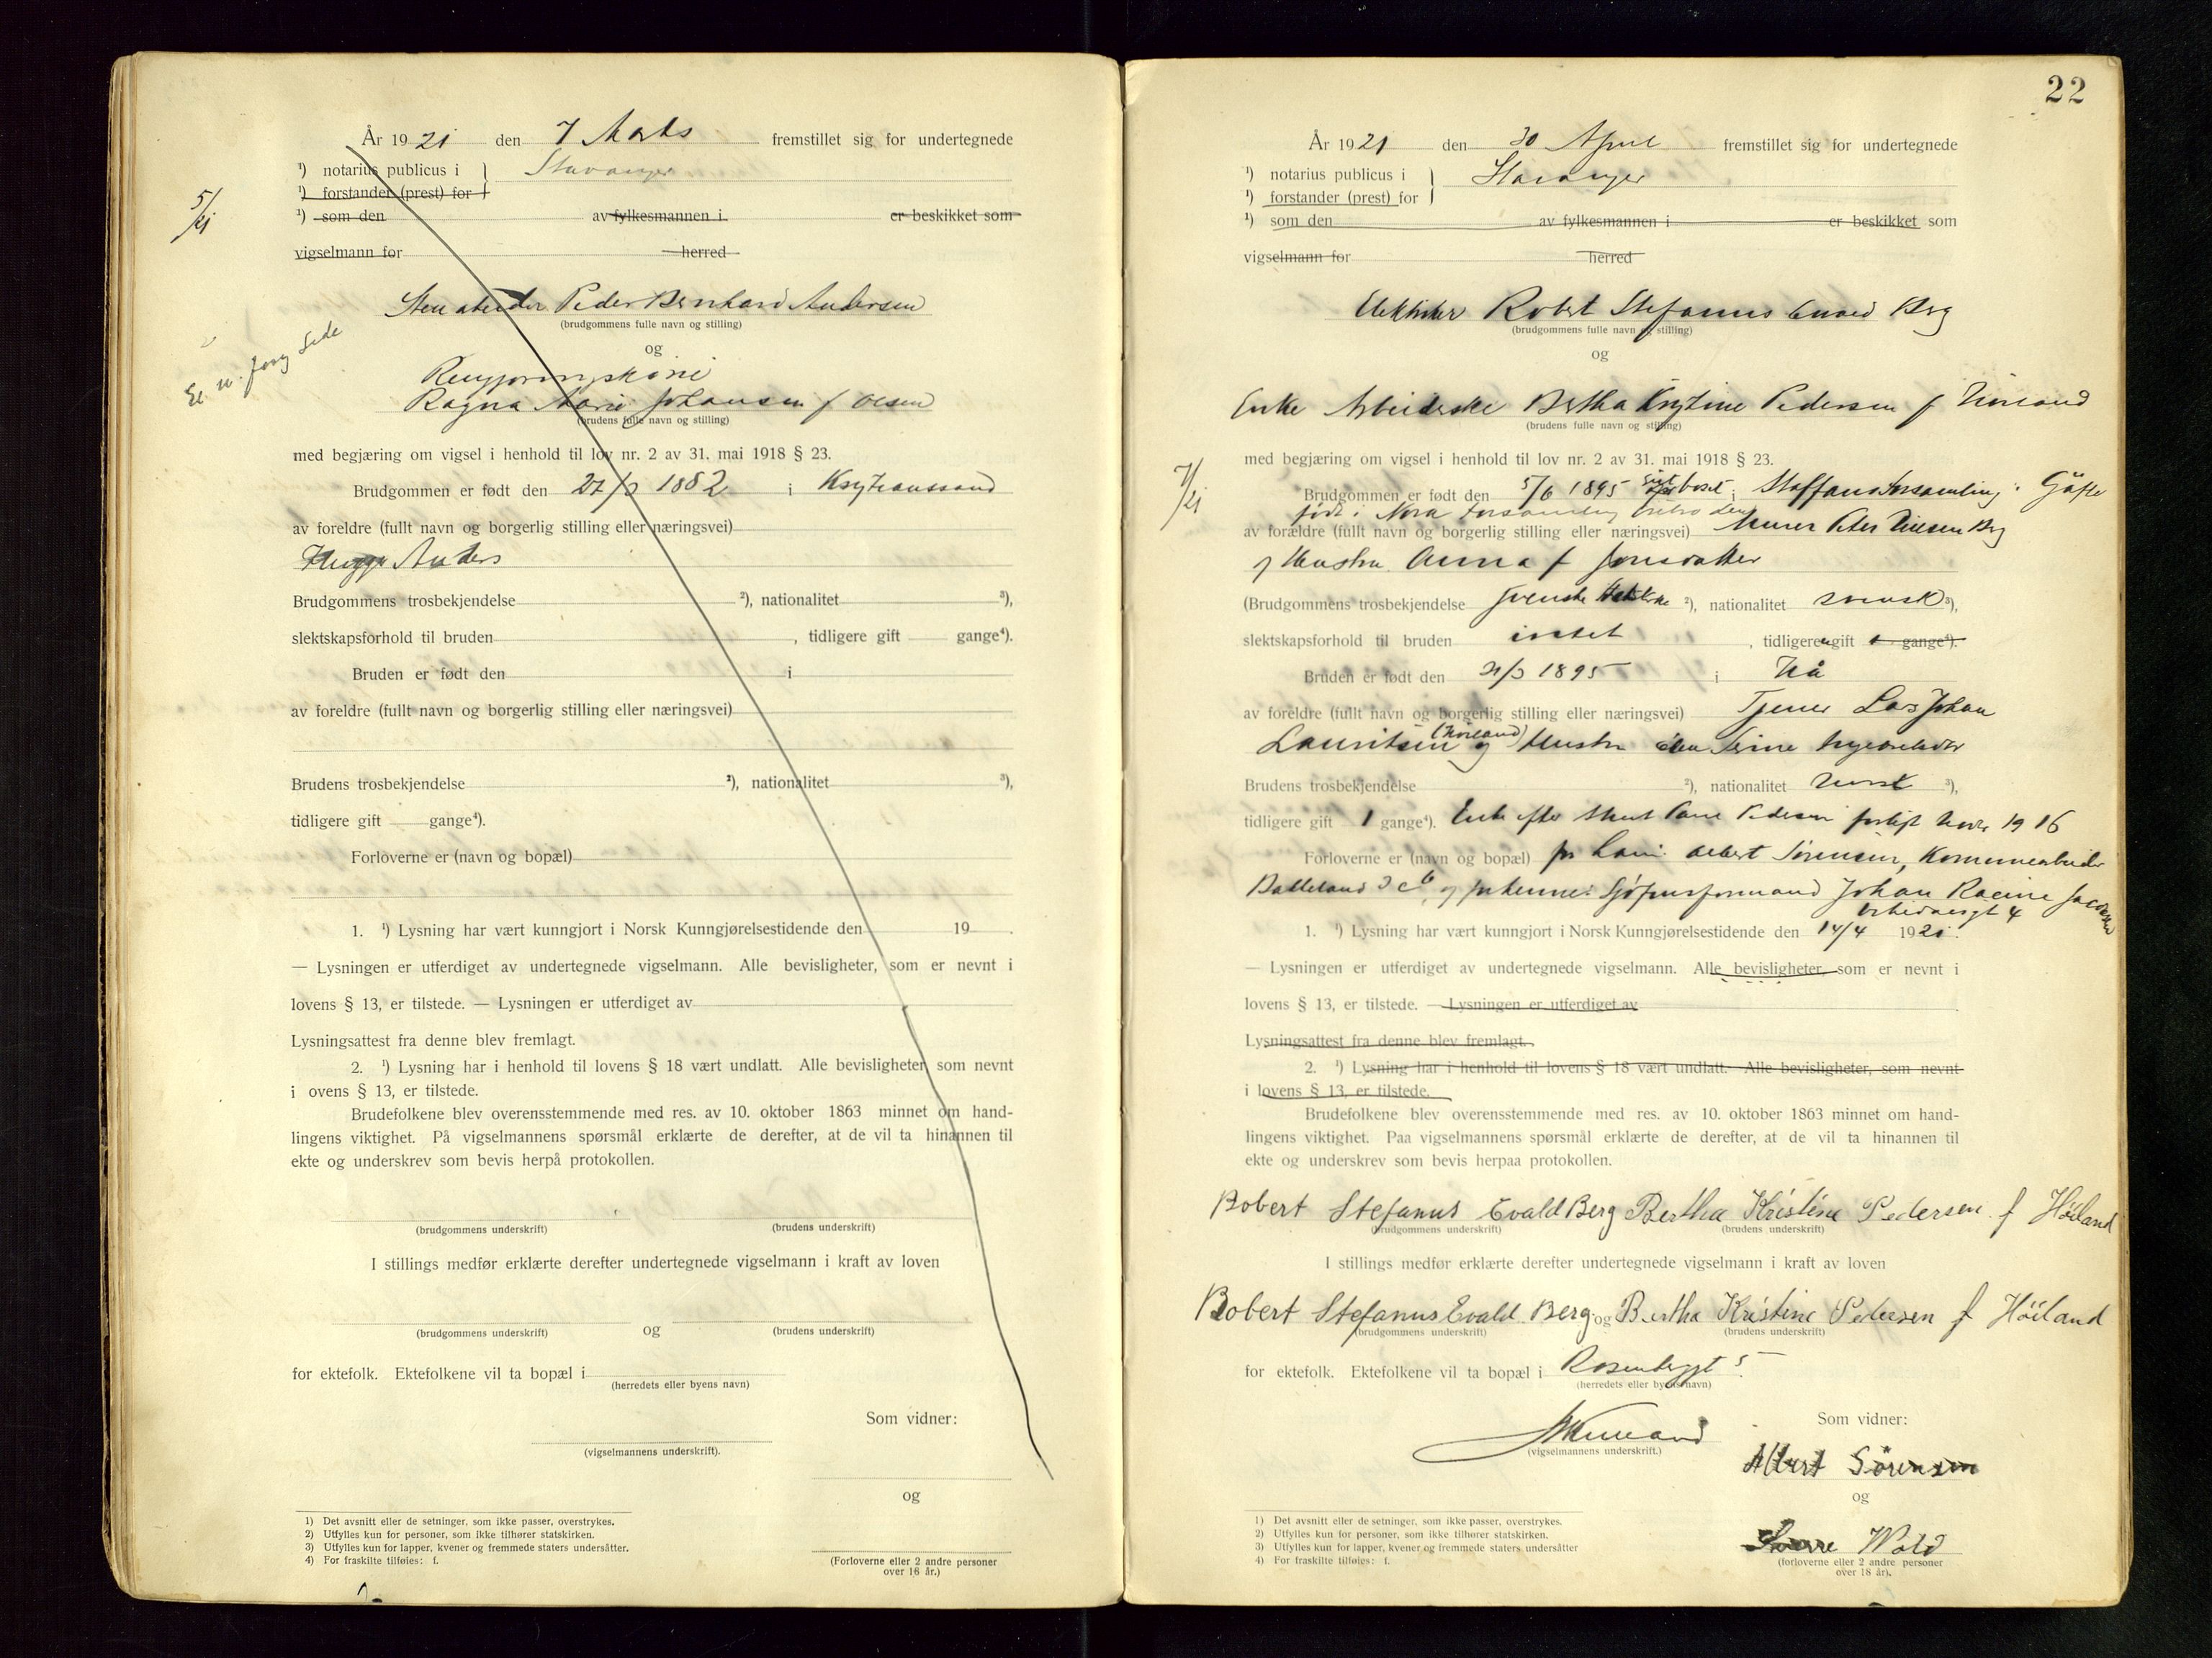 År 1921 den 7 Marts fremstillet sig for undertegnede
¹) notarius publicus i } Stavanger
¹) forstander (prest) for
¹) som den av fylkesmannen i er beskikket som
5/21
vigselmann for herred
Stenarbeider Peder Bernhard Andersen
(brudgommens fulle navn og stilling)
og
Se n. forrg Side
Rengjøringskone
Ragna Marie Johansen f Olsen
(brudens fulle navn og stilling)
med begjæring om vigsel i henhold til lov nr. 2 av 31. mai 1918 § 23.
Brudgommen er født den 27/3 1882 i Kristianssand
av foreldre (fullt navn og borgerlig stilling eller næringsvei)
Anders
Brudgommens trosbekjendelse ²), nationalitet ³),
slektskapsforhold til bruden , tidligere gift gange⁴).
Bruden er født den i
av foreldre (fullt navn og borgerlig stilling eller næringsvei)
Brudens trosbekjendelse ²), nationalitet ³),
tidligere gift gange⁴).
Forloverne er (navn og bopæl)
1. ¹) Lysning har vært kunngjort i Norsk Kunngjørelsestidende den 19 .
— Lysningen er utferdiget av undertegnede vigselmann. Alle bevisligheter, som er nevnt i
lovens § 13, er tilstede. — Lysningen er utferdiget av
Lysningsattest fra denne blev fremlagt.
2. ¹) Lysning har i henhold til lovens § 18 vært undlatt. Alle bevisligheter, som nevnt
i ovens § 13, er tilstede.
Brudefolkene blev overensstemmende med res. av 10. oktober 1863 minnet om hand-
lingens viktighet. På vigselmannens spørsmål erklærte de derefter, at de vil ta hinannen til
ekte og underskrev som bevis herpå protokollen.
(brudgommens underskrift) (brudens underskrift)
I stillings medfør erklærte derefter undertegnede vigselmann i kraft av loven
og
(brudgommens underskrift) (brudens underskrift)
for ektefolk. Ektefolkene vil ta bopæl i
(herredets eller byens navn)
Som vidner:
(vigselmannens underskrift).
og
1) Det avsnitt eller de setninger, som ikke passer, overstrykes.
2) Utfylles kun for personer, som ikke tilhører statskirken.
3) Utfylles kun for lapper, kvener og fremmede staters undersåtter.
4) For fraskilte tilføies: f.
(Forloverne eller 2 andre personer
over 18 år.)
22
År 1921 den 30 April fremstillet sig for undertegnede
¹) notarius publicus i } Stavanger
¹) forstander (prest) for
¹) som den av fylkesmannen i er beskikket som
vigselmann for herred
Elektriker Robert Stefanus Evald Berg
(brudgommens fulle navn og stilling)
og
Enke Arbeiderske Bertha Kristine Pedersen f Höiland
(brudens fulle navn og stilling)
med begjæring om vigsel i henhold til lov nr. 2 av 31. mai 1918 § 23.
7/21
Brudgommen er født den 5/6 1895 bosat i Staffans forsamling i Gäfle
født i Nora forsamling Örebro len
av forældre (fullt navn og borgerlig stilling eller næringsvei) Murer Peter Nilsen Berg
og Hustru Anna f Jonsdatter
(Brudgommens trosbekjendelse svenske Statskirke ²), nationalitet svensk ³),
slektskapsforhold til bruden intet , tidligere gift gange⁴).
Bruden er født den 21/3 1895 i Hå
av foreldre (fullt navn og borgerlig stilling eller næringsvei) Tjener Lars Johan
Lauritsen (Höiland) og Hustru Serine
Brudens trosbekjendelse ²), nationalitet norsk ³),
tidligere gift 1 gange⁴). Enke efter Pedersen 1916
Forloverne er (navn og bopæl) for ham: Albert Sørensen, Komunearbeider
og for henne: Johan Racine Jacobsen
4
1. ¹) Lysning har vært kunngjort i Norsk Kunngjørelsestidende den 14/4 1921.
— Lysningen er utferdiget av undertegnede vigselmann. Alle bevisligheter, som er nevnt i
lovens § 13, er tilstede. — Lysningen er utferdiget av
Lysningsattest fra denne blev fremlagt.
2. ¹) Lysning har i henhold til lovens § 18 vært undlatt. Alle bevisligheter, som nevnt
i lovens § 13, er tilstede.
Brudefolkene blev overensstemmende med res. av 10. oktober 1863 minnet om hand-
lingens viktighet. Paa vigselmannens spørsmål erklærte de derefter, at de vil ta hinannen til
ekte og underskrev som bevis herpaa protokollen.
Robert Stefanus Evald Berg Bertha Kristine Pedersen f Höiland
(brudgommens underskrift) (brudens underskrift)
I stillings medfør erklærte derefter undertegnede vigselmann i kraft av loven
Robert Stefanus Evald Berg og Bertha Kristine Pedersen f Höiland
(brudgommens underskrift) (brudens underskrift)
for ektefolk. Ektefolkene vil ta bopæl i Rosenbergt 5.
(herredets eller byens navn)
Som vidner:
(vigselmannens underskrift.)
Albert Sørensen
og
Sverre Wold
1) Det avsnitt eller de setninger, som ikke passer, overstrykes.
2) Utfylles kun for personer, som ikke tilhører statskirken.
3) Utfylles kun for lapper, kvener og fremmede staters undersåtter
4) For fraskilte tilføies: f.
(forloverne eller 2 andre personer
over 18 år).